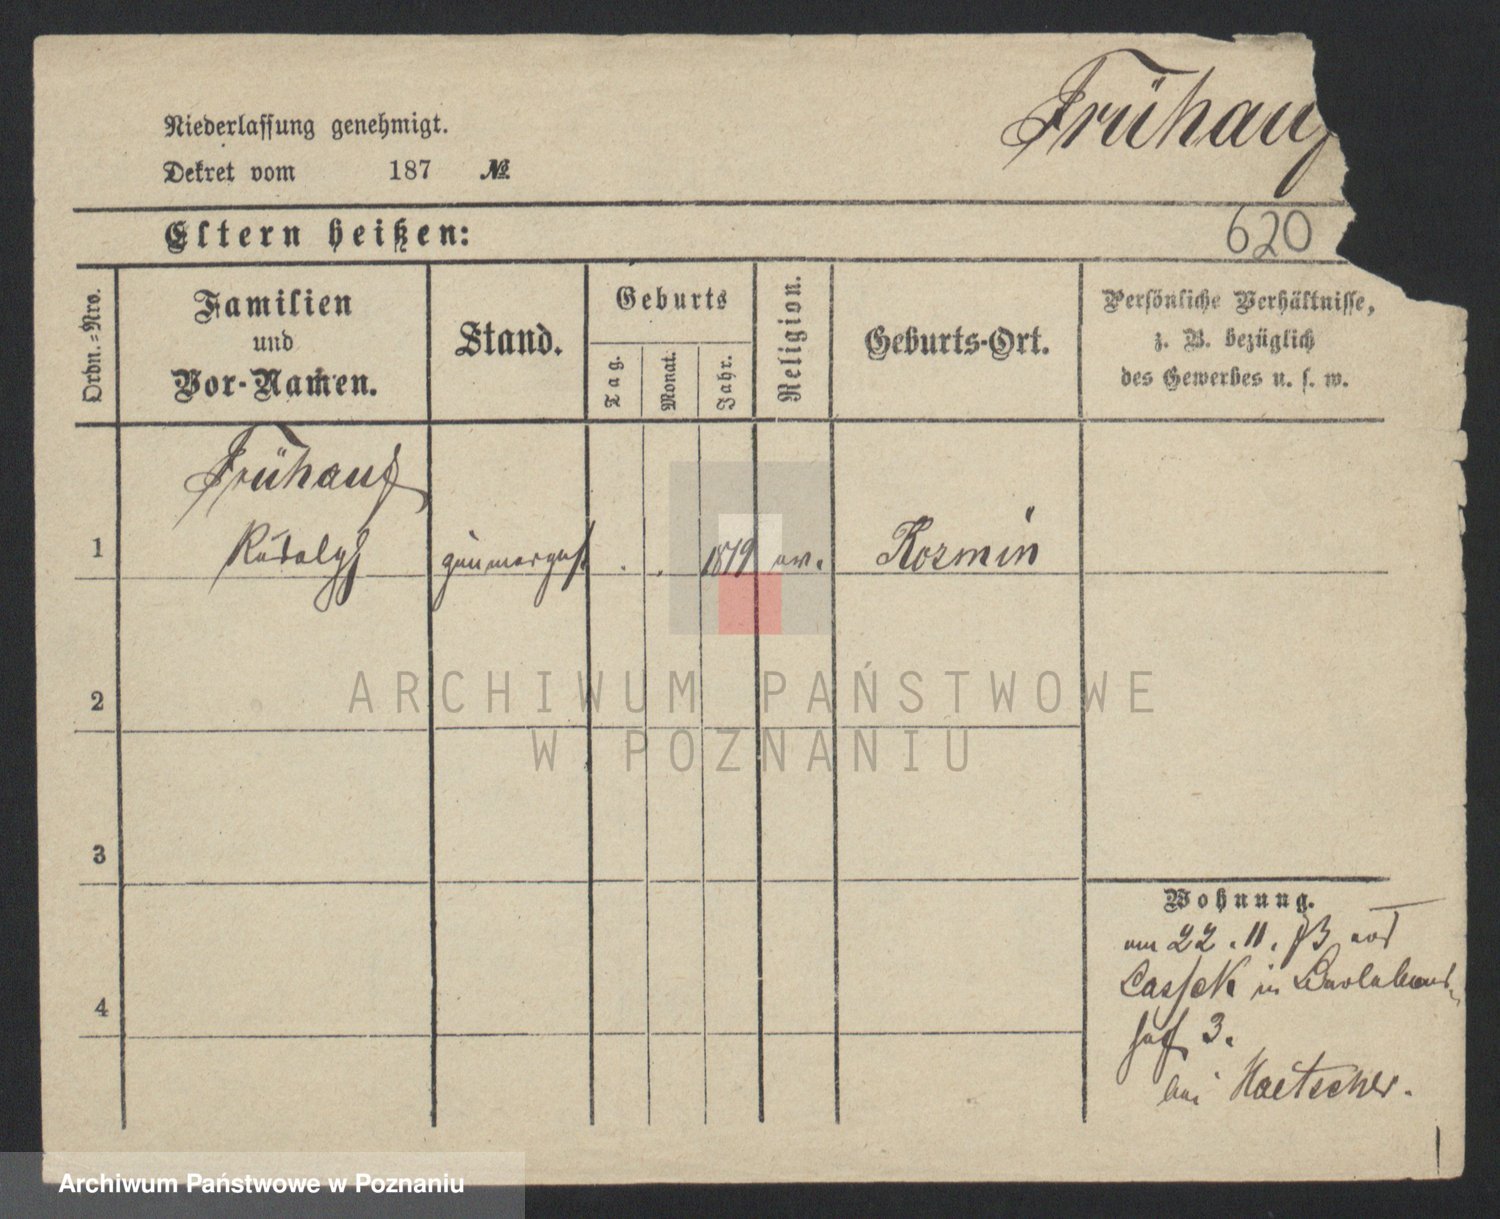 Frühauf
Niederlassung genehmigt.
Dekret vom 187 №
Eltern heißen:
620
Ordn.-Nro.
Familien
und
Vor-Namen.
Stand.
Geburts
Tag.
Monat.
Jahr.
Religion.
Geburts-Ort.
Persönliche Verhältnisse,
z. B. bezüglich
des Gewerbes u. s. w.
Frühauf
1 Rudolph . . 1819 ev. Kozmin
2
ARCHIWUM PAŃSTWOWE
W POZNANIU
3
4
Wohnung.
am 22. 11. 83
in
hof 3.
bei
Archiwum Państwowe w Poznaniu